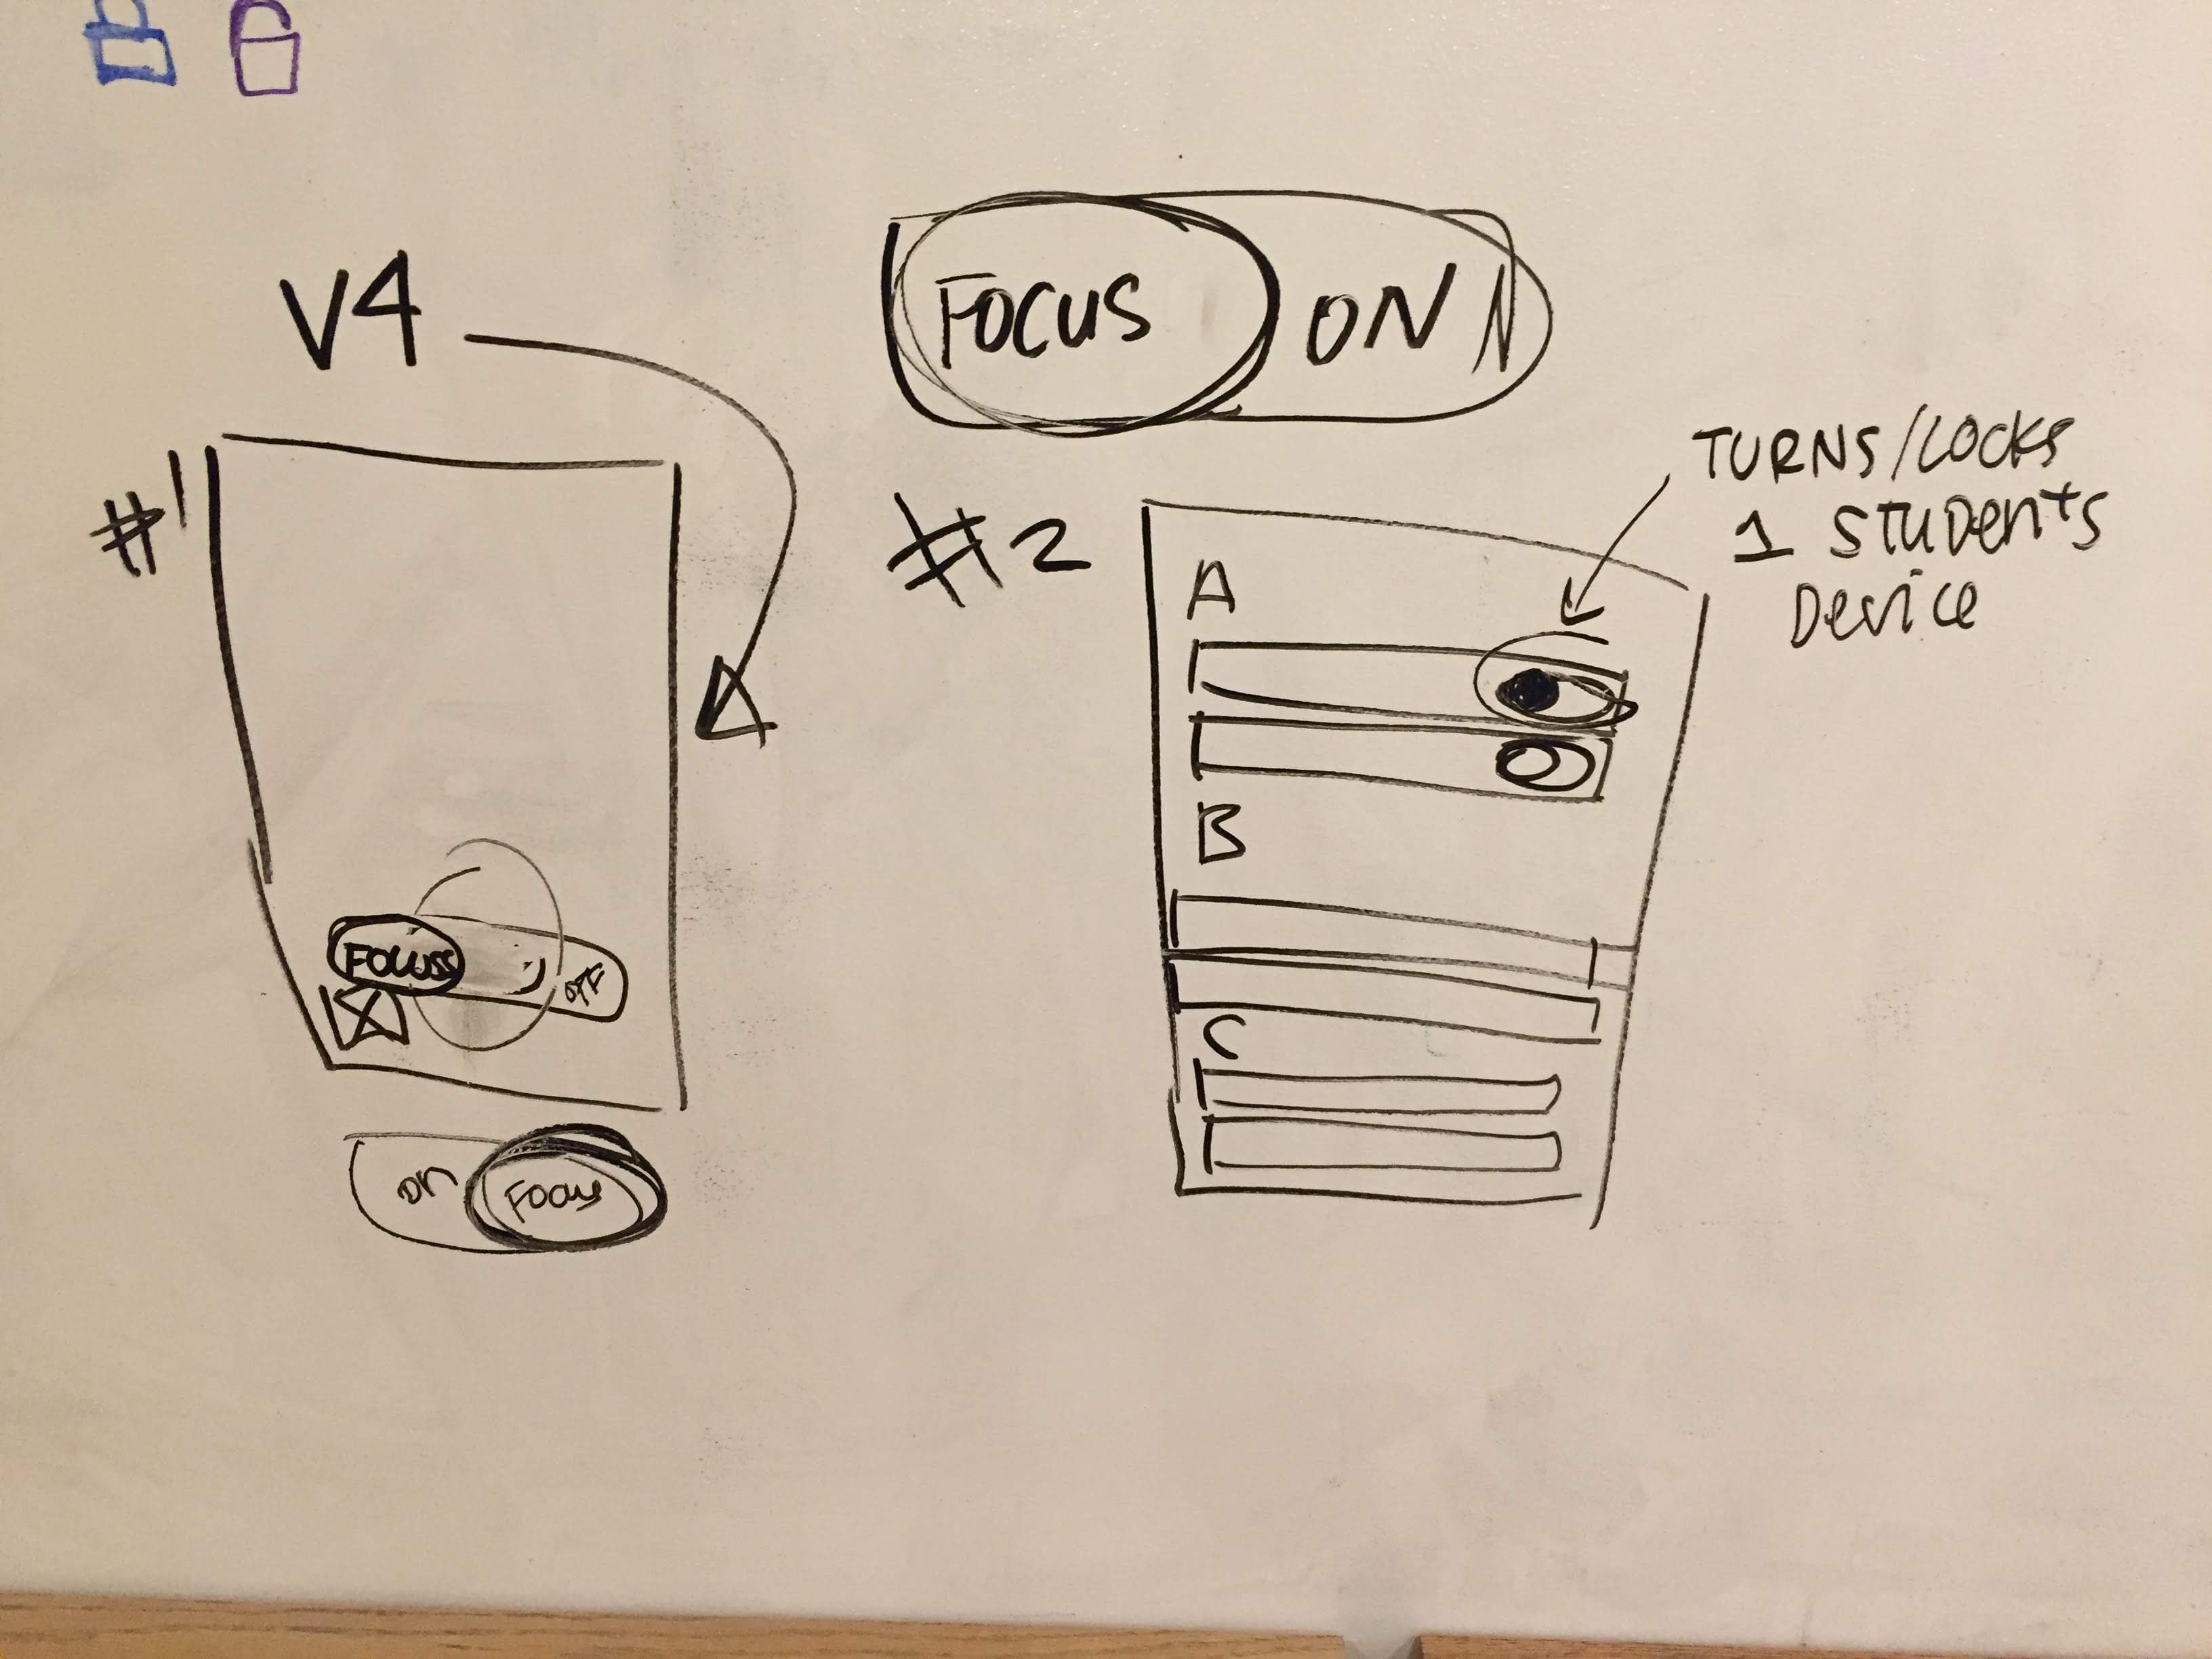 V4
FOCUS ON N
#1
FOCUSS OFF
on Focus
#2
TURNS/LOCKS
1 STUDENTS
DEVICE
A
B
C